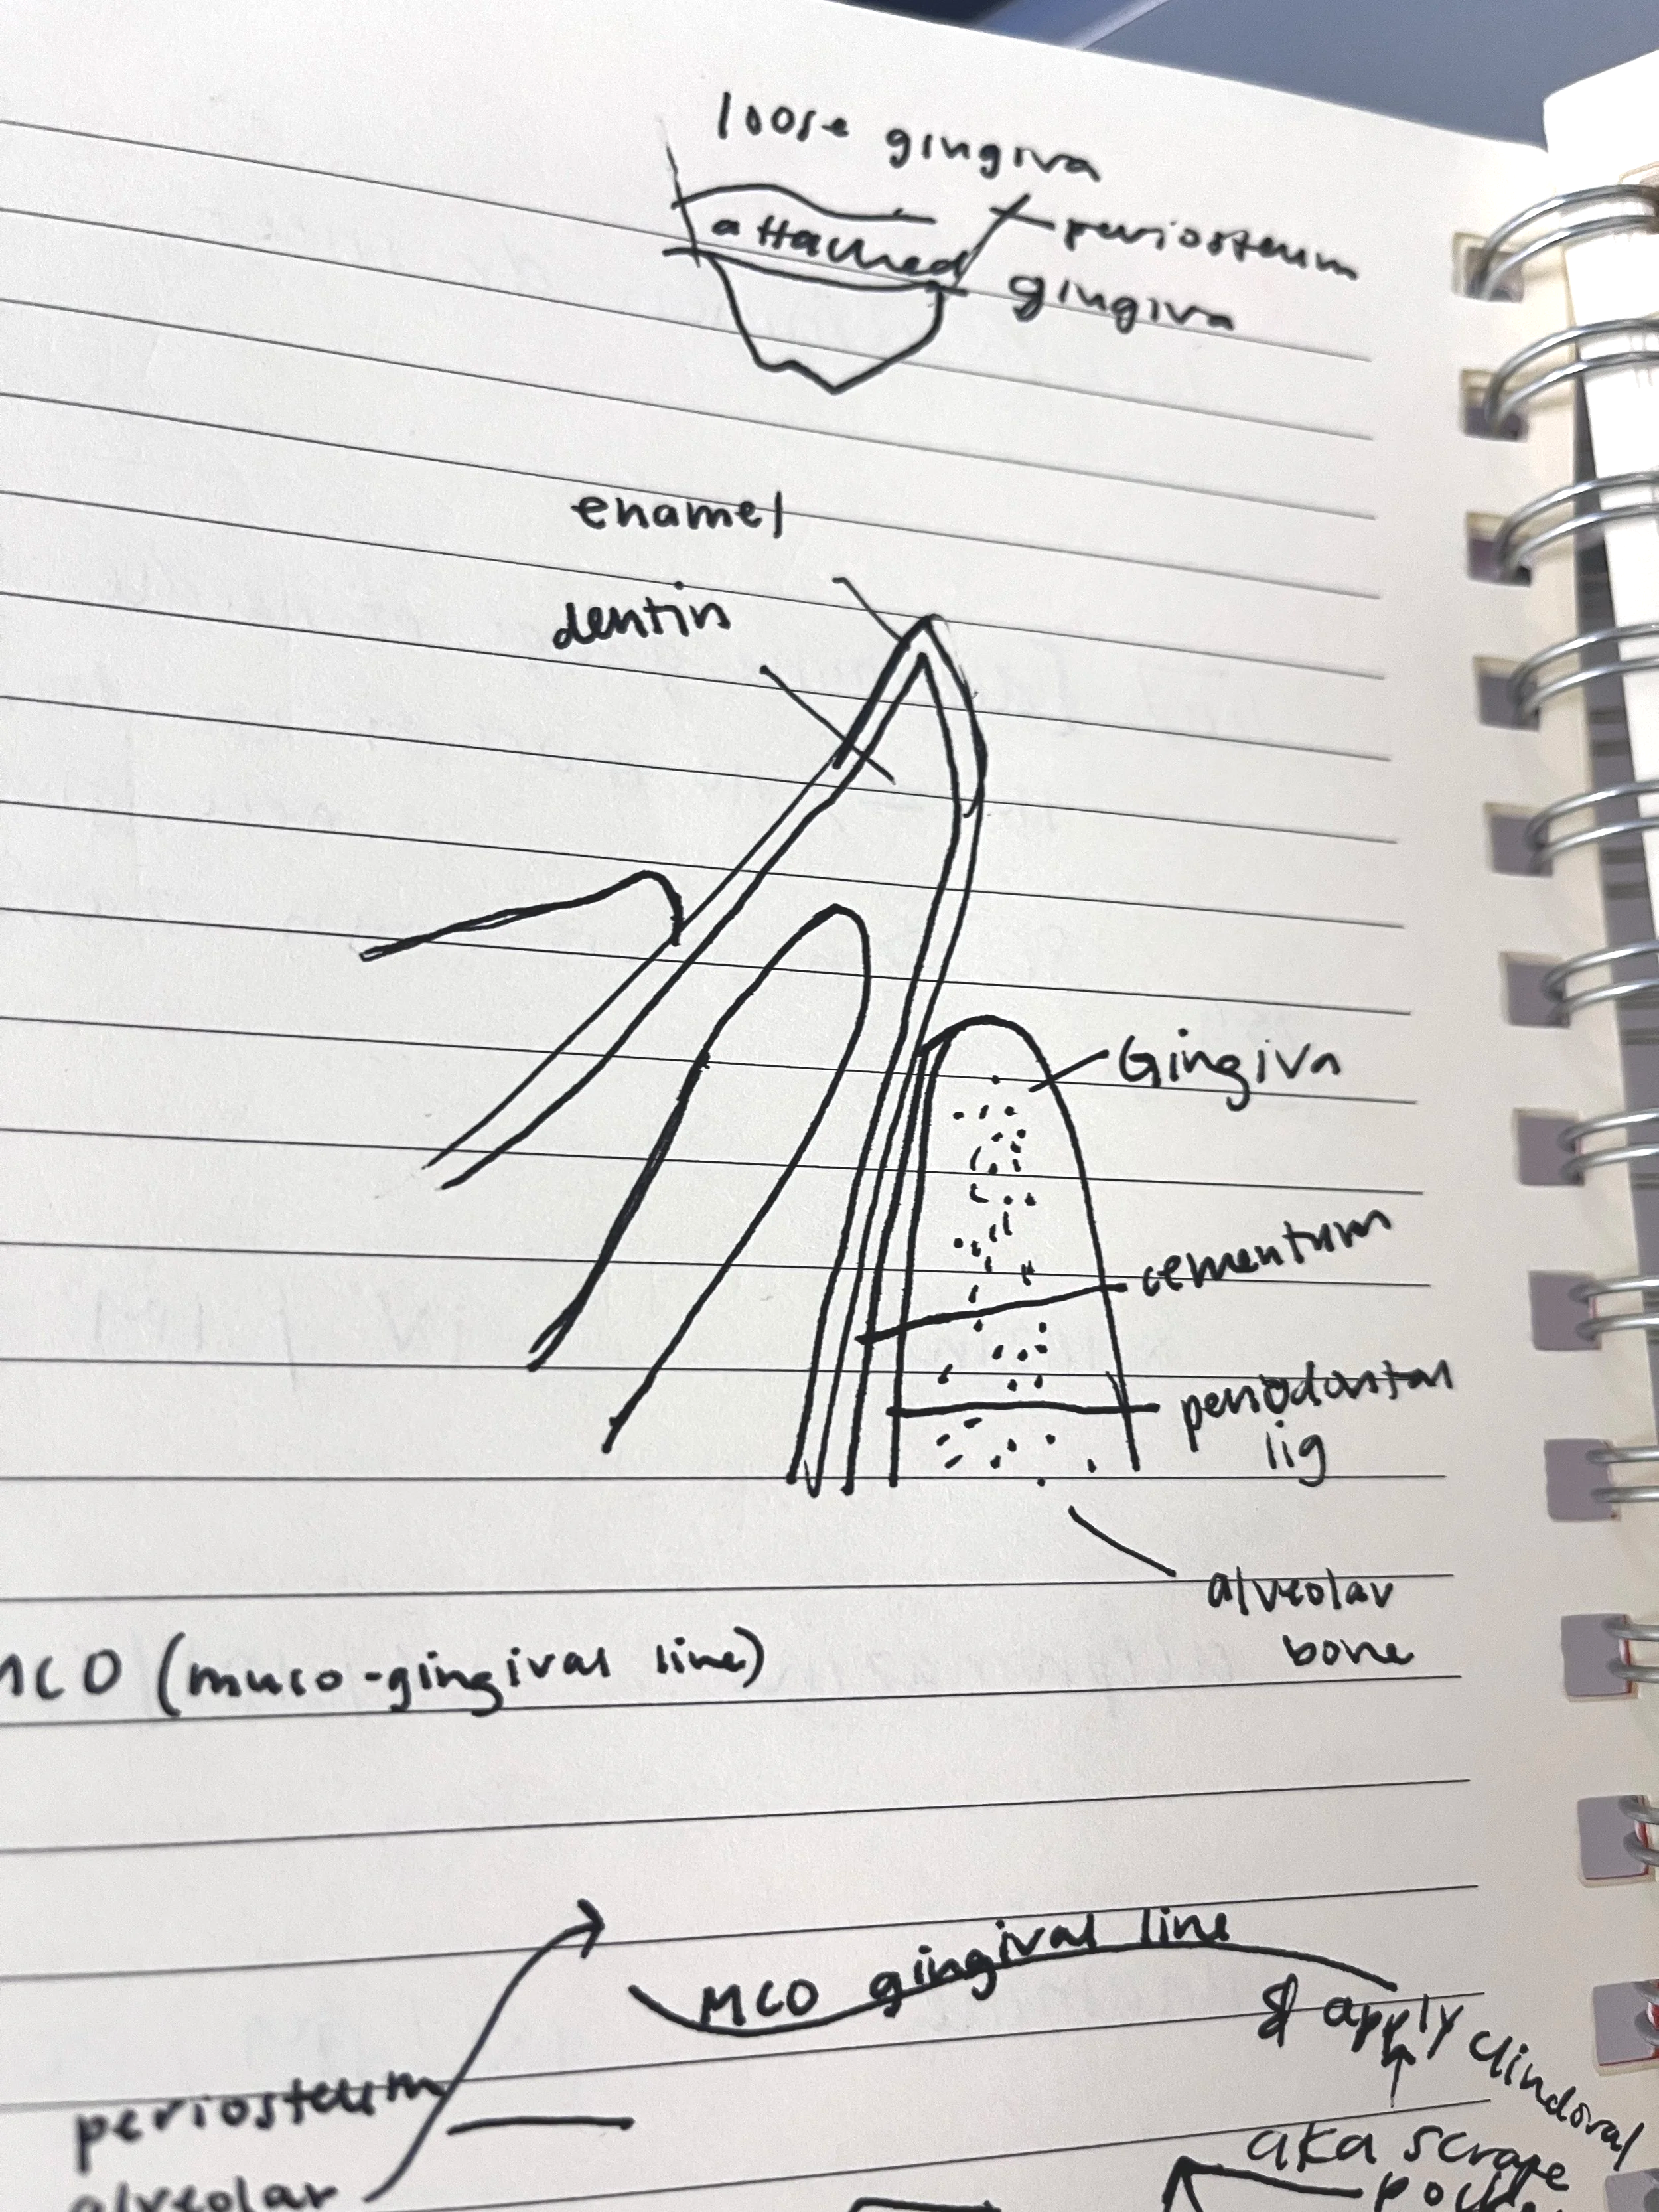 loose gingiva
attached gingiva
periosteum
enamel
dentin
Gingiva
cementum
periodontal
lig
alveolar
bone
MCO (muco-gingival line)
MCO gingival line
& apply clindoral
periosteum
aka scrape
alveolar